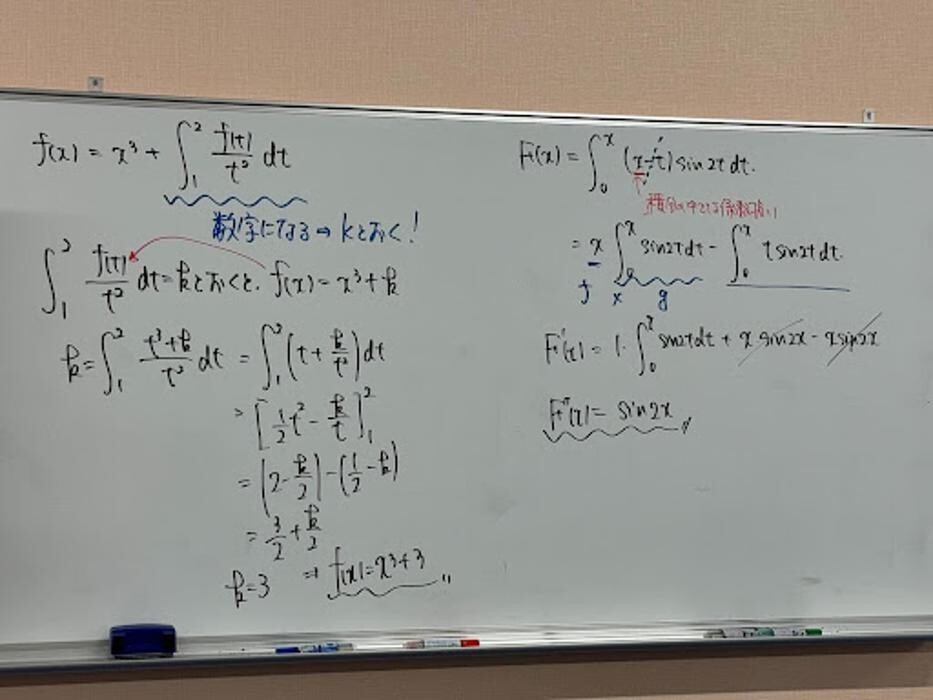 f(x) = x³ + ∫₁² f(t)/t² dt
数字になる ⇒ kとおく!
∫₁² f(t)/t² dt = kとおくと、 f(x) = x³ + k
k = ∫₁² (t³+k)/t² dt = ∫₁² (t + k/t²) dt
= [1/2 t² - k/t]₁²
= (2 - k/2) - (1/2 - k)
= 3/2 + k/2
k = 3 ⇒ f(x) = x³ + 3 〃
F(x) = ∫₀ˣ (x - t) sin2t dt.
= x ∫₀ˣ sin2t dt - ∫₀ˣ t sin2t dt.
f x g
F'(x) = 1・∫₀ˣ sin2t dt + x sin2x - x sin2x
F''(x) = sin2x 〃